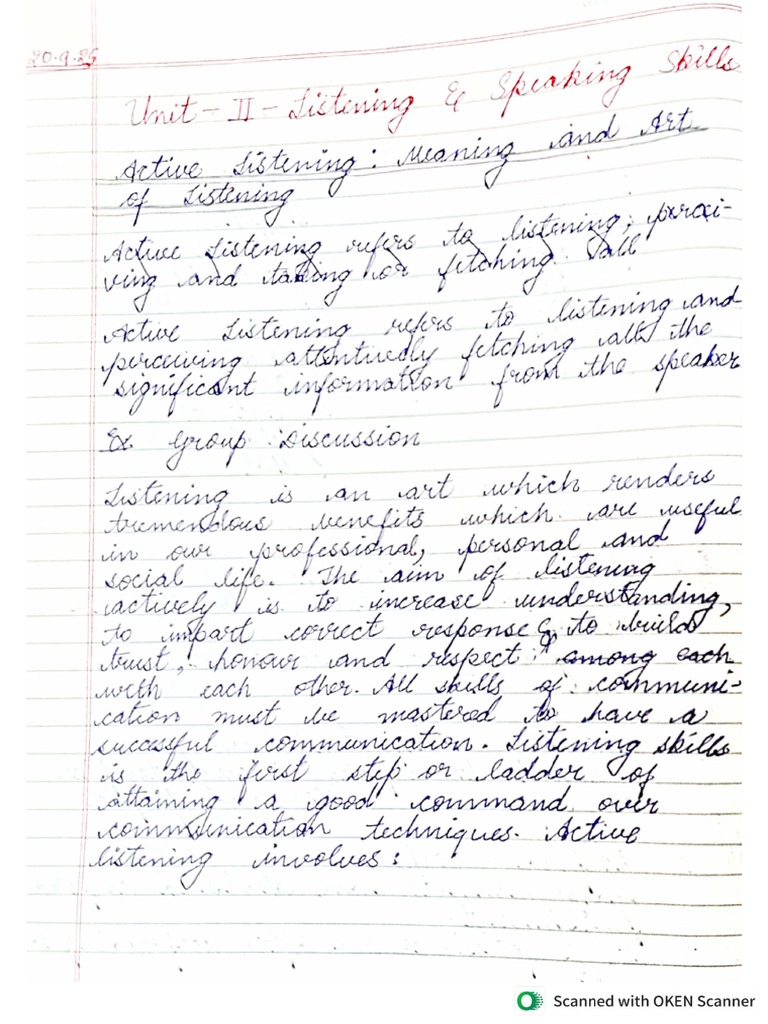 20.9.25
Unit - II - Listening & Speaking Skills
Active Listening : Meaning and Art
of Listening
Active Listening refers to listening, percei-
ving and taking or fetching all
Active Listening refers to listening and
perceiving attentively fetching all the
significant information from the speaker
Ex Group Discussion
Listening is an art which renders
tremendous benefits which are useful
in our professional, personal and
social life. The aim of listening
actively is to increase understanding,
to impart correct response & to build
trust, honour and respect among each
with each other. All skills of communi-
cation must be mastered to have a
successful communication. Listening skills
is the first step or ladder of
attaining a good command over
communication techniques. Active
listening involves :
Scanned with OKEN Scanner